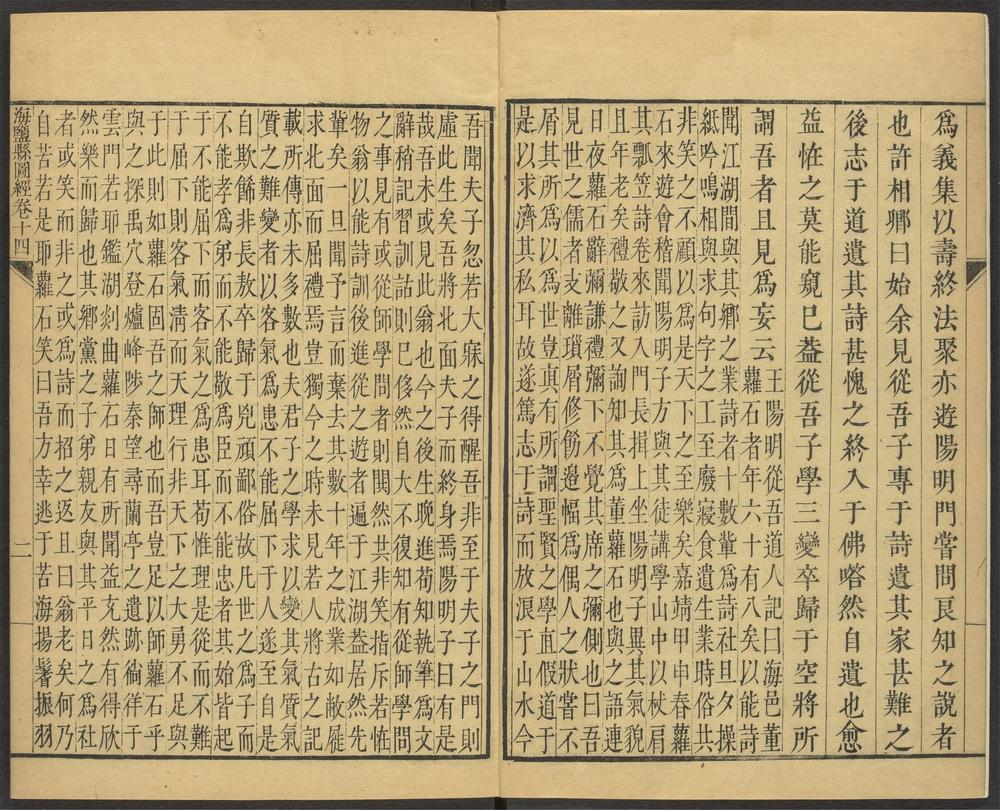 爲義集以壽終法聚亦遊陽明門嘗問良知之說者
也許相卿曰始余見從吾子專于詩遺其家甚難之
後志于道遺其詩甚愧之終入于佛嗒然自遺也愈
益恠之莫能窺巳葢從吾子學三變卒歸于空將所
謂吾者且見爲妄云
王陽明從吾道人記曰海邑董
蘿石者年六十有八矣以能詩
聞江湖間與其鄉之業詩者十數輩爲詩社旦夕操
紙吟鳴相與求句字之工至廢寢食遺生業時俗共
非笑之不顧以爲是天下之至樂矣嘉靖甲申春蘿
石來遊會稽聞陽明子方與其徒講學山中以杖肩
其瓢笠詩卷來訪入門長揖上坐陽明子異其氣貌
且年老矣禮敬之又詢知其爲董蘿石也與之語連
日夜蘿石辭彌謙禮彌下不覺其席之彌側也曰吾
見世之儒者支離瑣屑修飭邊幅爲偶人之狀嘗不
屑其所爲以爲世豈真有所謂聖賢之學直假道于
是以求濟其私耳故遂篤志于詩而放浪于山水今
吾聞夫子忽若大寐之得醒吾非至于夫子之門則
虛此生矣吾將北面夫子而終身焉陽明子曰有是
哉吾未或見此翁也今之後生晚進苟知執筆爲文
辭稍記習訓詁則巳侈然自大不復知有從師學問
之事見有或從師學問者則鬨然共非笑指斥若恠
物翁以能詩訓後進從之遊者遍于江湖葢居然先
輩矣一旦聞予言而棄去其數十年之成業如敝屣
求北面而屈禮焉豈獨今之時未見若人將古之記
載所傳亦未多數也夫君子之學求以變其氣質氣
質之難變者以客氣爲患不能屈下于人遂至自是
自欺餙非長敖卒歸于兇頑鄙俗故凡世之爲子而
不能孝爲弟而不能敬爲臣而不能忠者其始皆起
于不能屈下而客氣之爲患耳苟惟理是從而不難
于屈下則客氣清而天理行非天下之大勇不足與
于此則如蘿石固吾之師也而吾豈足以師蘿石乎
與之探禹穴登爐峰陟秦望尋蘭亭之遺跡徜徉于
雲門若耶鑑湖剡曲蘿石日有所聞益充然有得欣
然樂而歸也其鄉黨之子弟親友與其平日之爲社
者或笑而非之或爲詩而招之返且曰翁老矣何乃
自苦若是耶蘿石笑曰吾方幸逃于苦海揚鬐振羽
海鹽縣圖經卷十四 二